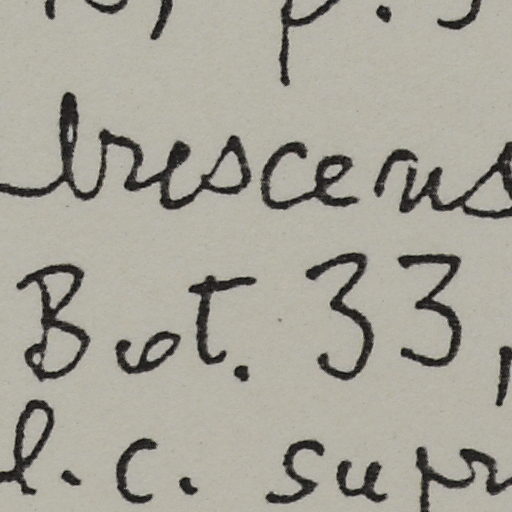 p.
brescens
Bot. 33,
l.c. supr